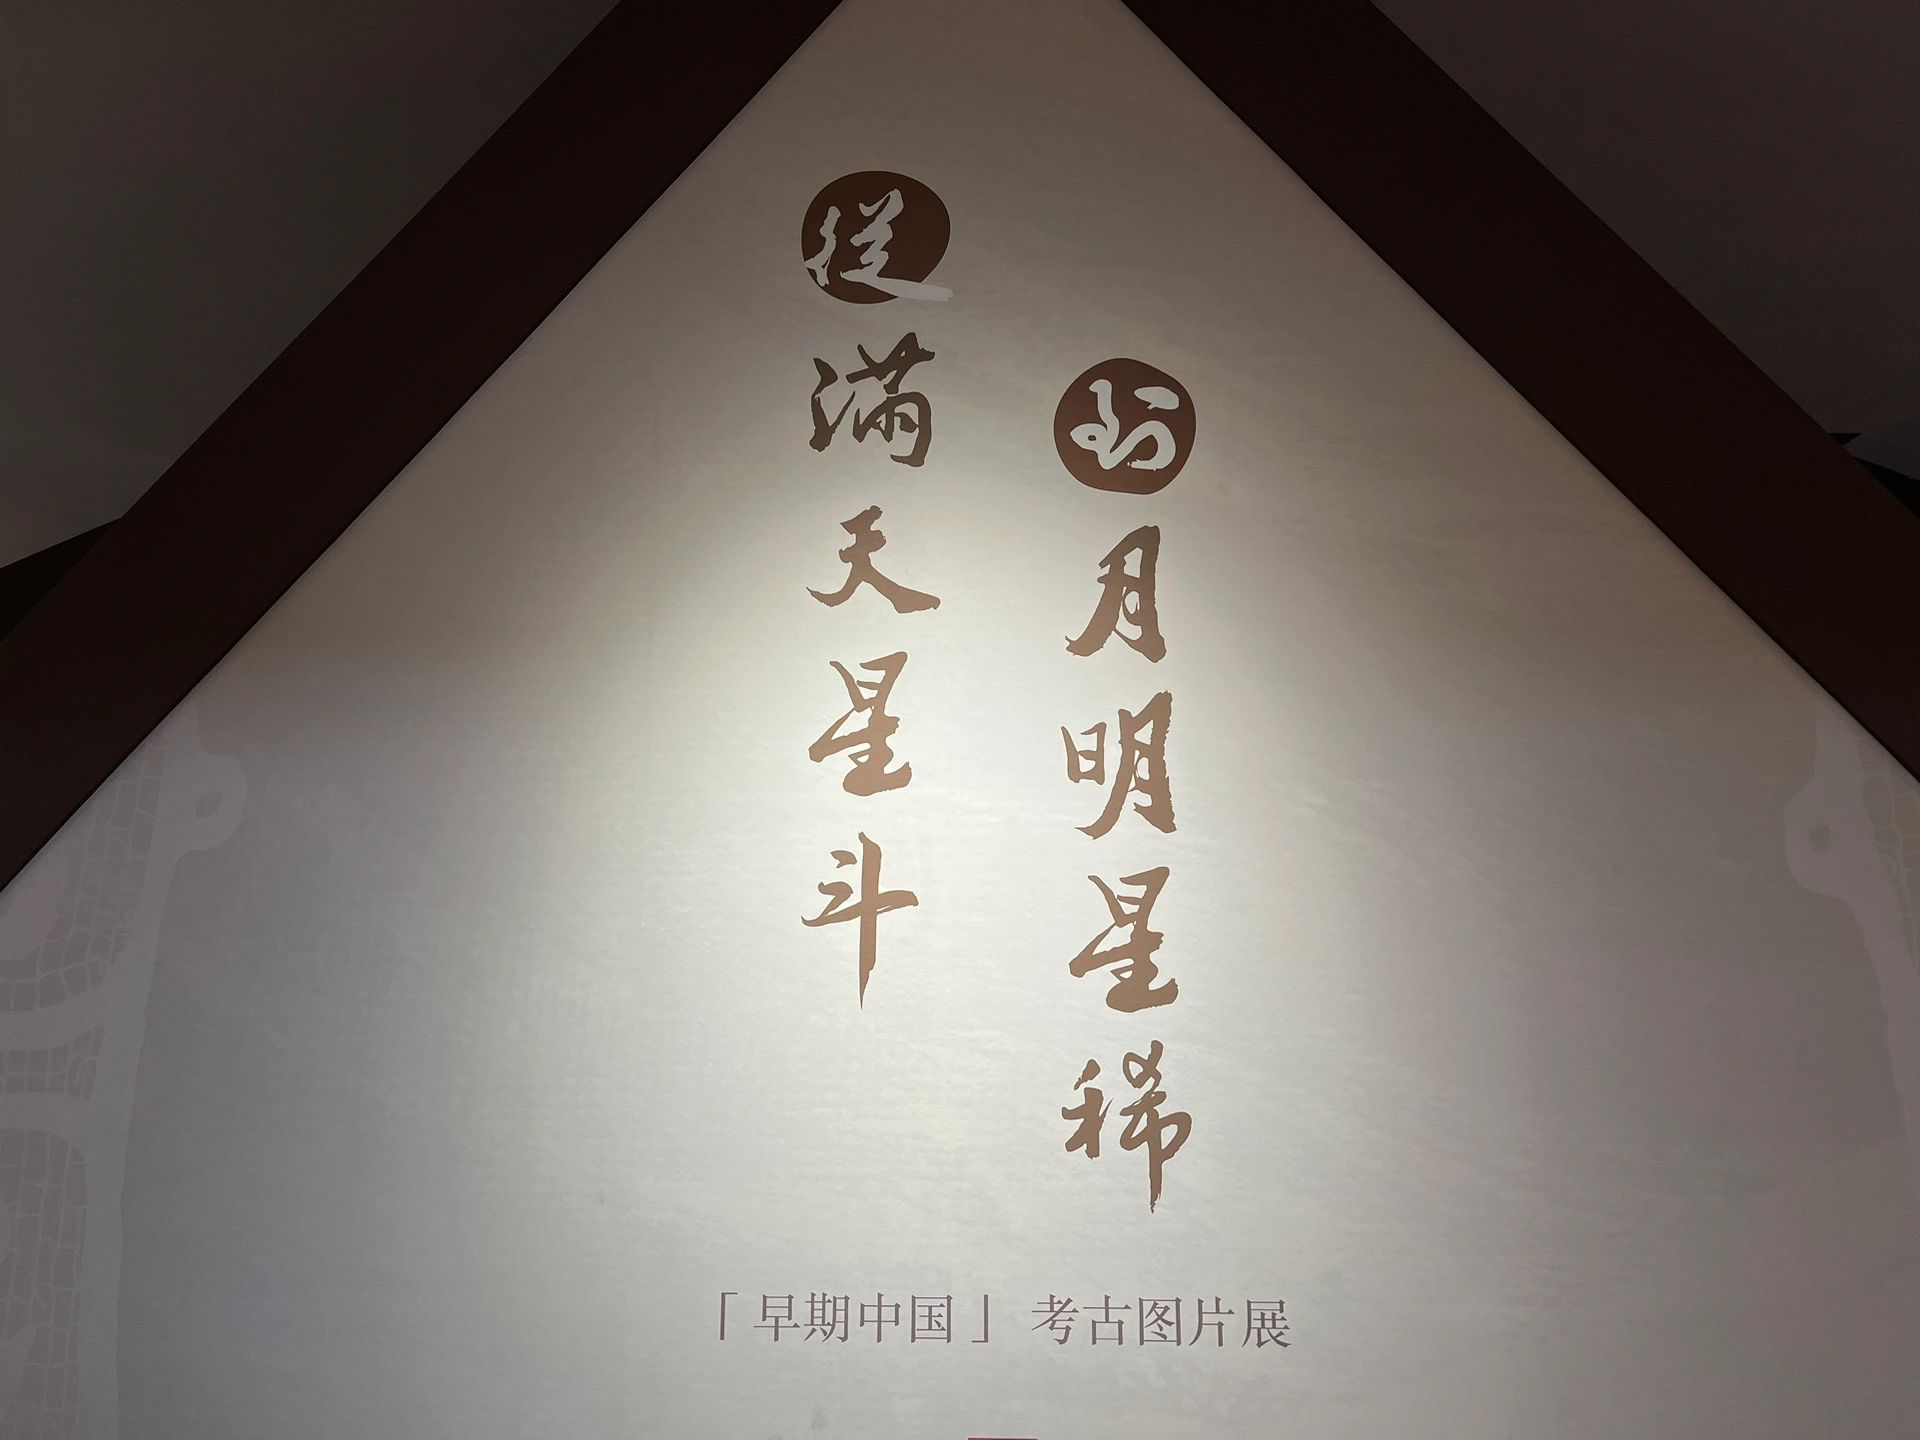 從满天星斗
到月明星稀
「早期中国」考古图片展